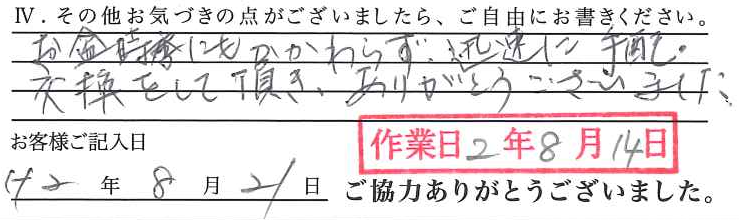 Ⅳ．その他お気づきの点がございましたら、ご自由にお書きください。
お盆時期にもかかわらず、迅速に手配、
交換をして頂き、ありがとうございました。
お客様ご記入日
作業日2年8月14日
R2年8月21日
ご協力ありがとうございました。